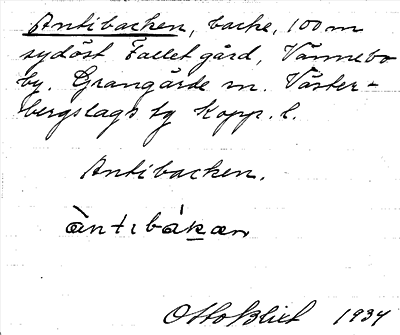 Antibacken, backe, 100 m
sydöst Fallet gård, Vännebo
by. Grangärde sn. Väster-
bergslags tg Kopp. l.
Antibacken.
àntibákan
Otto Blixt 1934